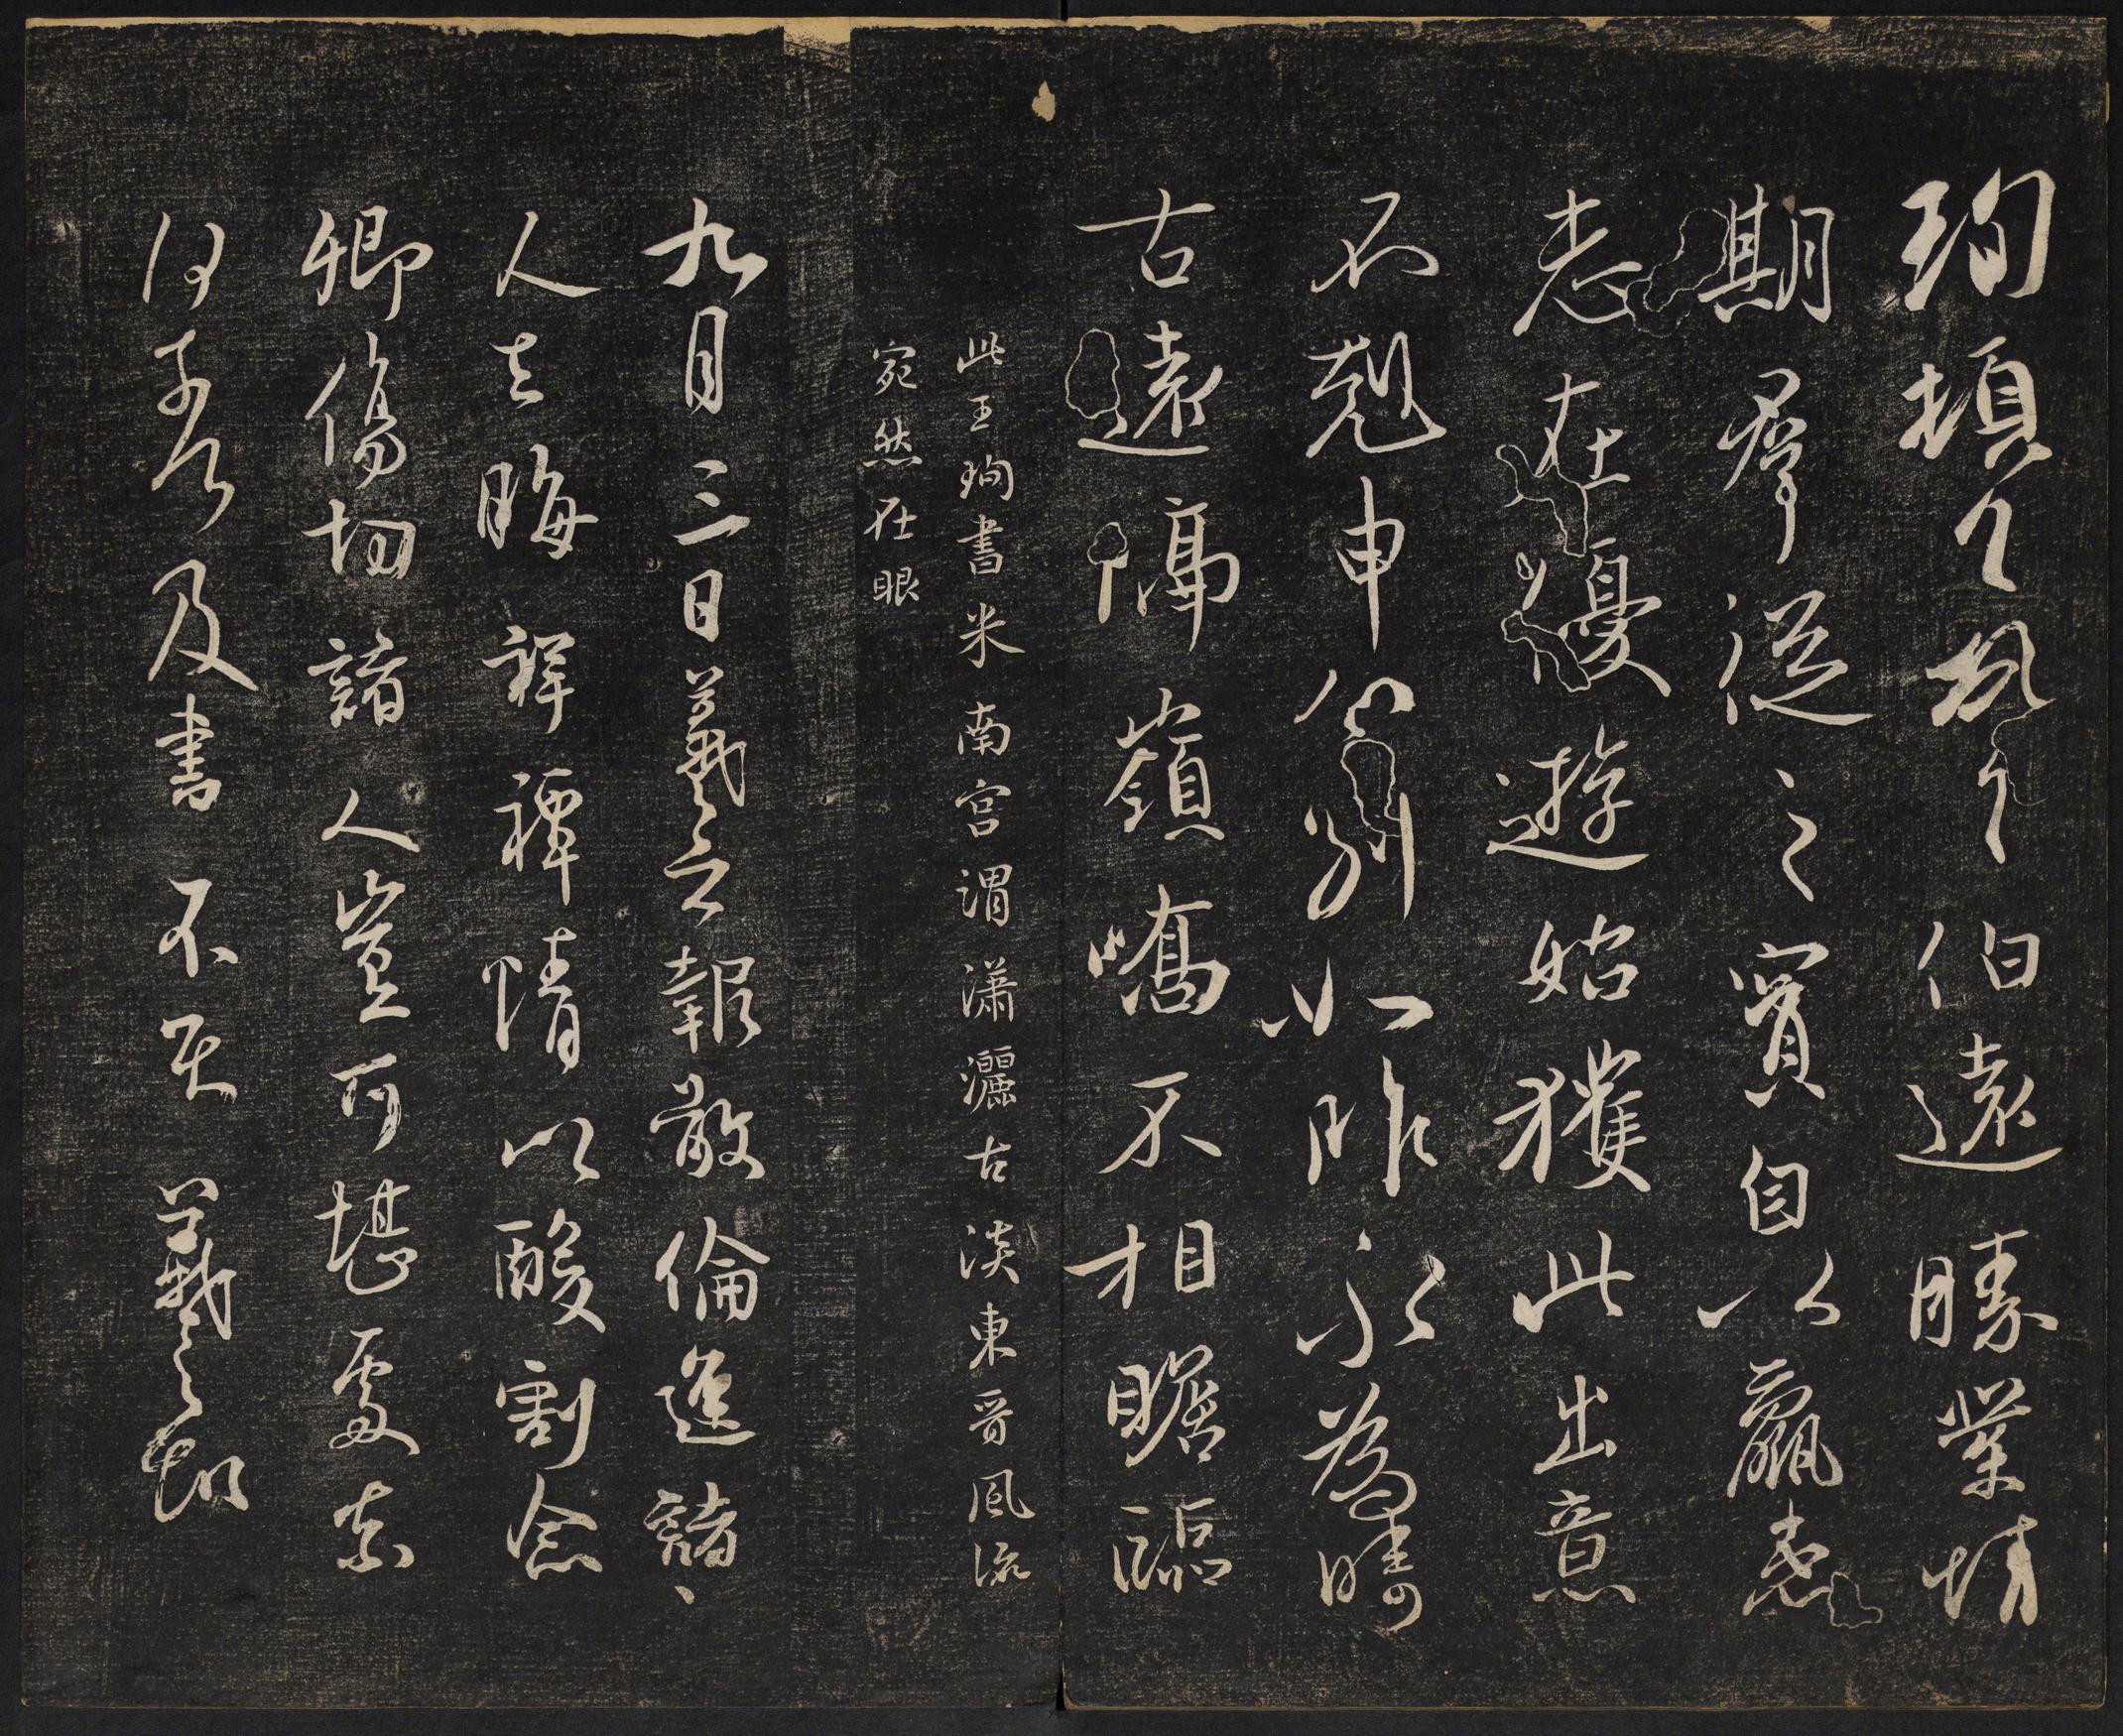 珣頓首頓首伯遠勝業情
期羣從之寶自以羸患
志在優遊始獲此出意
不剋申分別如昨永為疇
古遠隔嶺嶠不相瞻臨
此王珣書米南宮謂瀟灑古淡東晉風流
宛然在眼
九月三日羲之報敬倫遮諸
人去晦祥禫情以酸割念
卿傷切諸人豈可堪處奈
何奈何及書不具羲之報